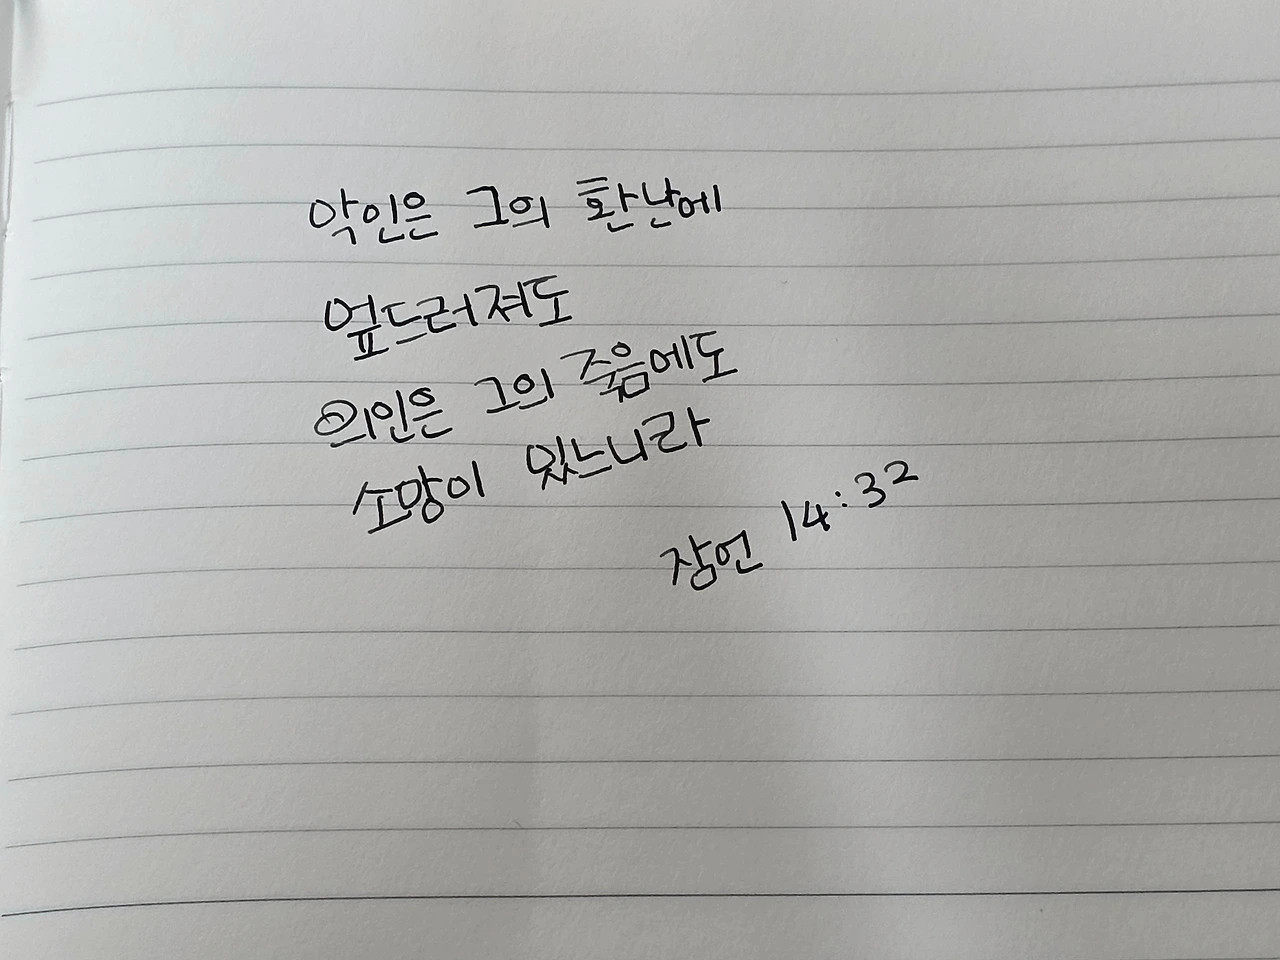 악인은 그의 환난에
엎드러져도
의인은 그의 죽음에도
소망이 있느니라
잠언 14:32